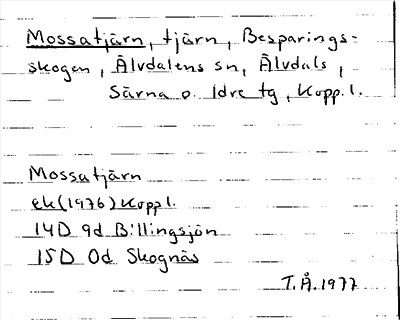 Mossatjärn, tjärn, Besparings-
skogen, Älvdalens sn, Älvdals,
Särna o. Idre tg, Kopp. l.
Mossatjärn
ek (1976) Kopp l.
14D 9d Billingsjön
15D 0d Skognäs
T.Å. 1977